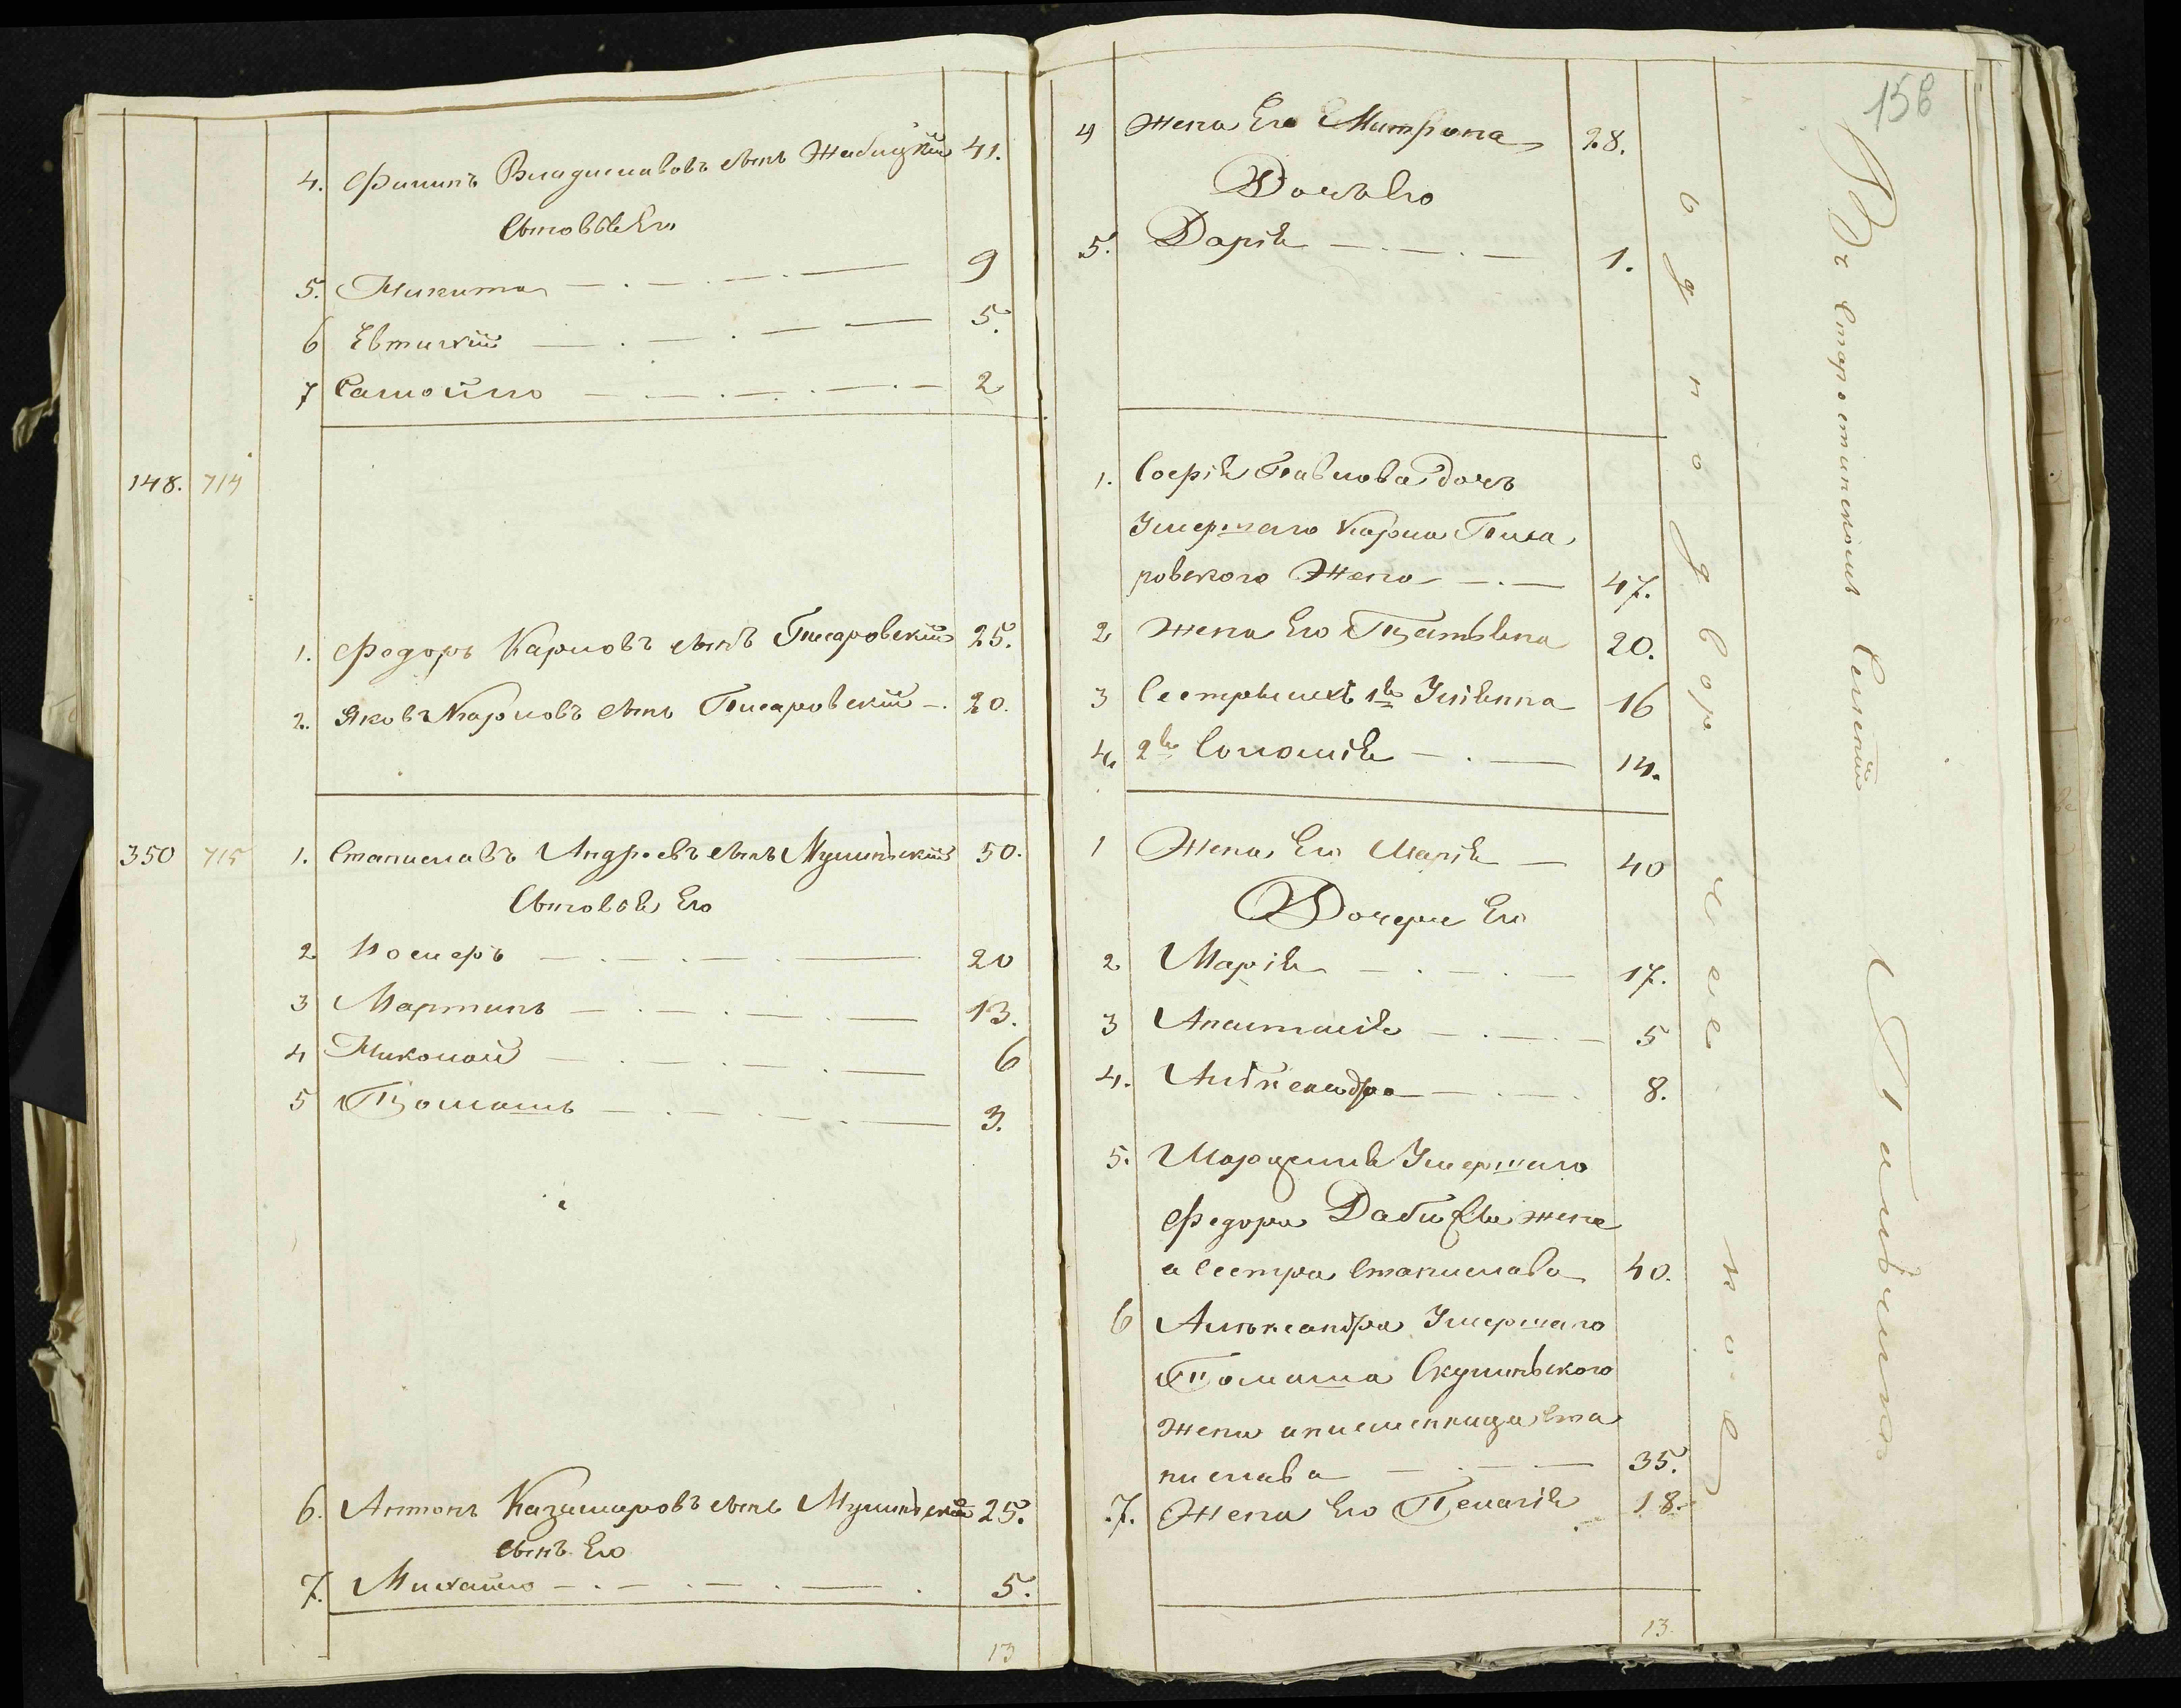 4. Филипъ Владиславовъ сынъ Жабицкій 41.
Сыновья Его
5. Никита — . — . — 9
6 Евтихій — . — . — — 5.
7 Самойло — . — . — . — 2
148. 714
1. Федоръ Карповъ сынъ Писаровскій 25.
2. Яковъ Карповъ сынъ Писаровскій — . 20.
350 715 1. Станиславъ Андреевъ сынъ 50.
Сыновья Его
2 20
3 Мартинъ — . — . — . — 13.
4 Николай — . — . — 6
5 Томашъ — . — . — . — 3.
6. Антонъ Казимировъ сынъ 25.
сынъ Его
7. Михайло — . — . — . — . 5.
13
156
4 жена Его Митрона 28.
Дочь Его
5. Дарія — . — . — 1.
1. Софія Павлова дочь
Умершаго Карпа Писа
ровского Жена — . — 47.
2 жена Его Татьяна 20.
3 Сестры ихъ 1я Уліянна 16
4, 2я Соломія — . — 14.
1 Жена Его Марія — 40
Дочери Его
2 Марія — . — . — 17.
3 Анастасія — . — . — 5
4. Александра — . — . 8.
5. Умершаго
Федора жена
а сестра Станислава 40.
6 Александра Умершаго
Томаша
жена а племенница Ста
нислава — . — . — 35.
.7. Жена Его Пелагія 18.
13.
однодворческое
Въ Старостинскомъ